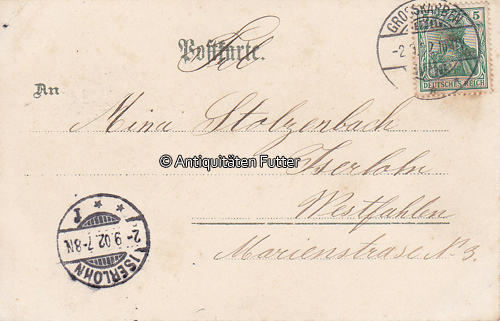 GROSSKARBEN
5
DEUTSCHES REICH
Postkarte.
An
Mina Stolzenbach
© Antiquitäten Futter
Iserlohn
Westfahlen
Marienstrase No 3.
ISERLOHN
2-9.02.7-8N.
1